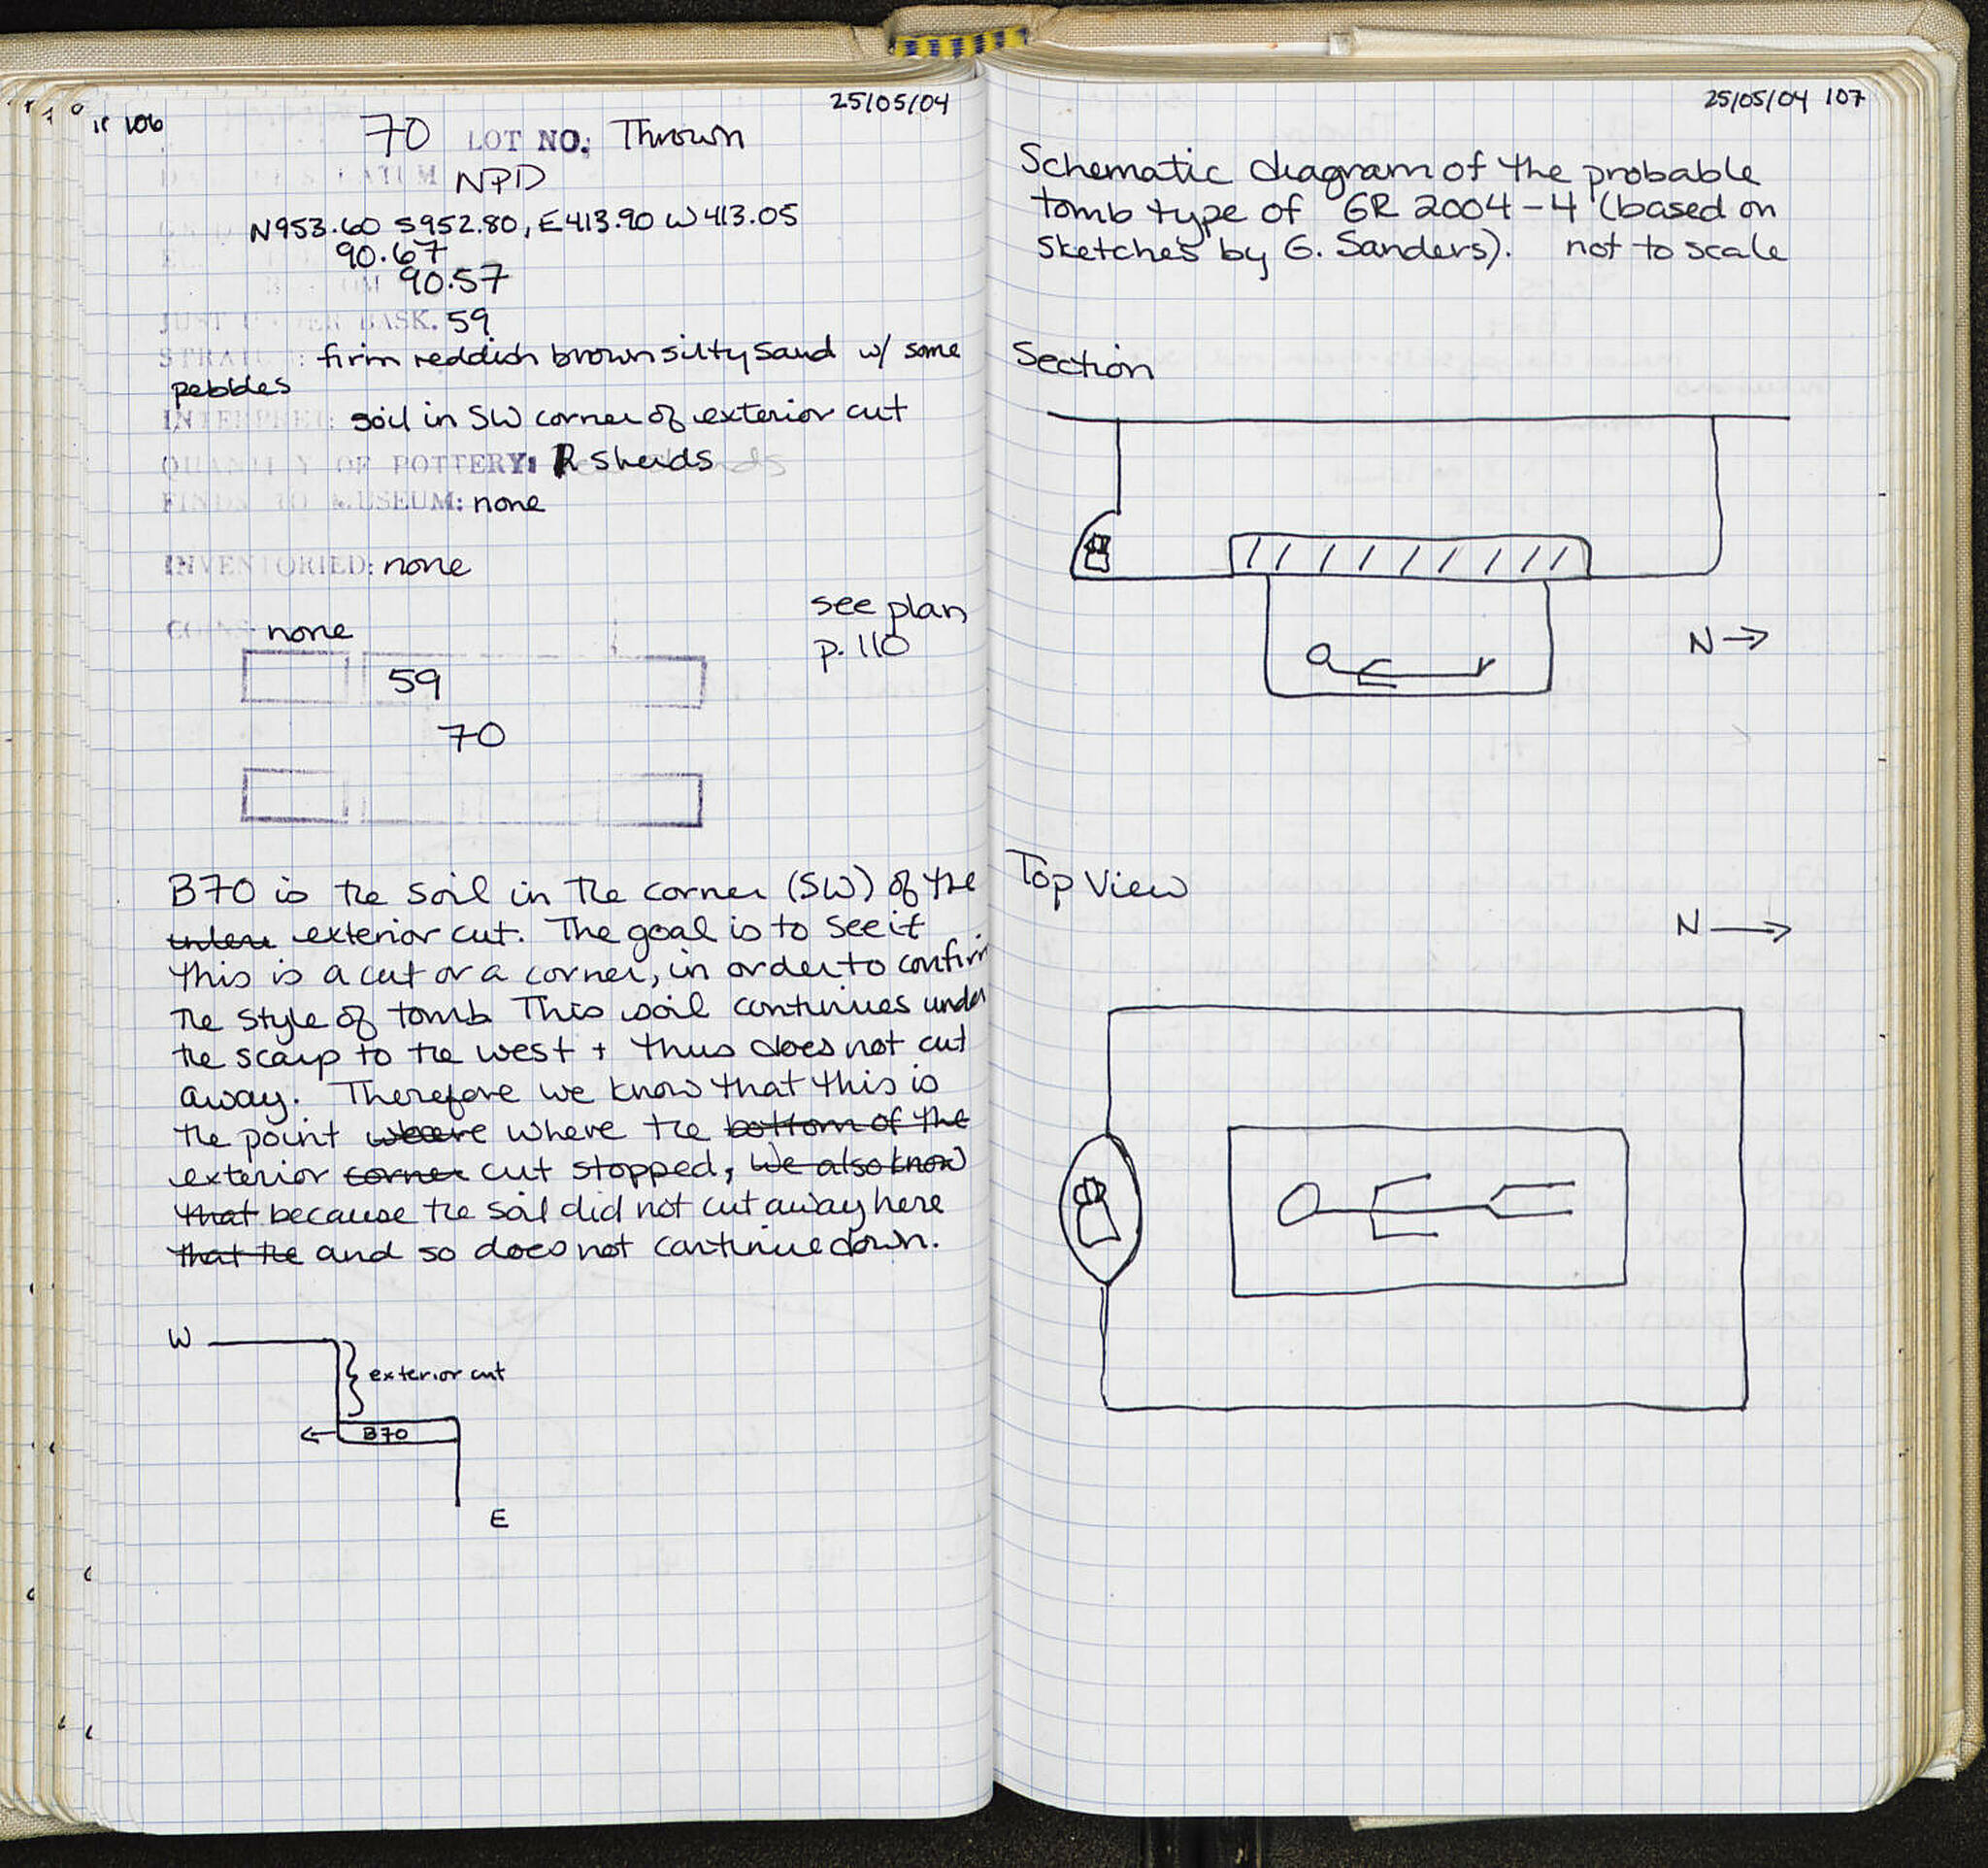 106
25/05/04
70 LOT NO.: Thrown
NPD
N953.60 S952.80, E413.90 W413.05
90.67
90.57
JUST UNDER BASK. 59
STRATUM: firm reddish brown silty sand w/ some
pebbles
INTERPRET: soil in SW corner of exterior cut
QUANTITY OF POTTERY: sherds
FINDS TO MUSEUM: none
INVENTORIED: none
COINS none
see plan
p. 110
59
70
B70 is the soil in the corner (SW) of the
exterior cut. The goal is to see if
this is a cut or a corner, in order to confirm
the style of tomb. This soil continues under
the scarp to the west + thus does not cut
away. Therefore we know that this is
the point where where the bottom of the
exterior corner cut stopped, We also know
that because the soil did not cut away here
that the and so does not continue down.
W
exterior cut
B70
E
25/05/04 107
Schematic diagram of the probable
tomb type of GR 2004-4 (based on
sketches by G. Sanders). not to scale
Section
N
Top View
N